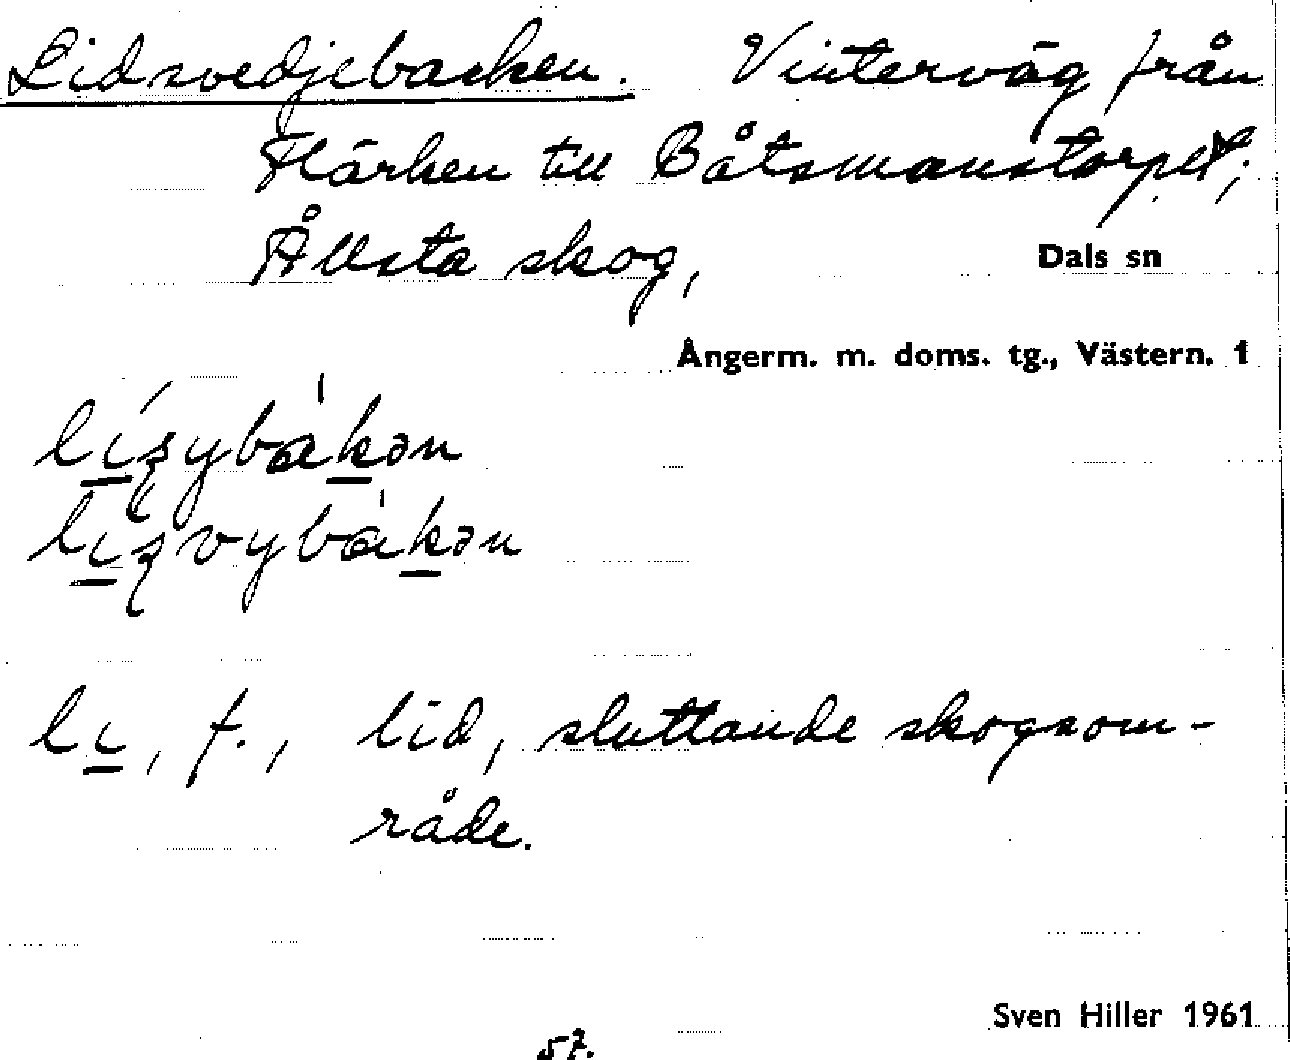 Lidsvedjebacken. Vinterväg från
Flärken till Båtsmanstorpet,
Ållsta skog,
Dals sn
Ångerm. m. doms. tg., Västern. 1
li, f., lid, sluttande skogsom-
råde.
Sven Hiller 1961
57.